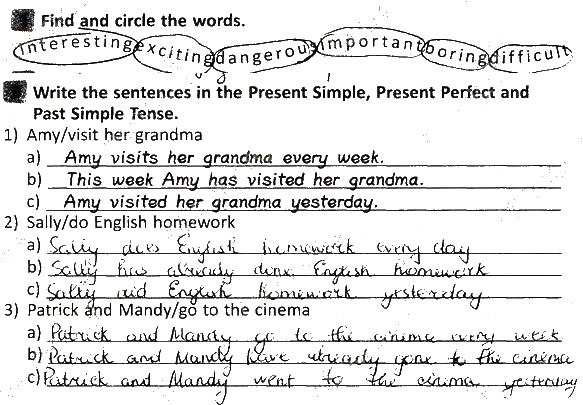 Find and circle the words.
interestingexcitingdangerousimportantboringdifficult
Write the sentences in the Present Simple, Present Perfect and
Past Simple Tense.
1) Amy/visit her grandma
a) Amy visits her grandma every week.
b) This week Amy has visited her grandma.
c) Amy visited her grandma yesterday.
2) Sally/do English homework
a) Sally does English homework every day
b) Sally has already done English homework
c) Sally did English homework yesterday
3) Patrick and Mandy/go to the cinema
a) Patrick and Mandy go to the cinema every week
b) Patrick and Mandy have already gone to the cinema
c) Patrick and Mandy went to the cinema yesterday